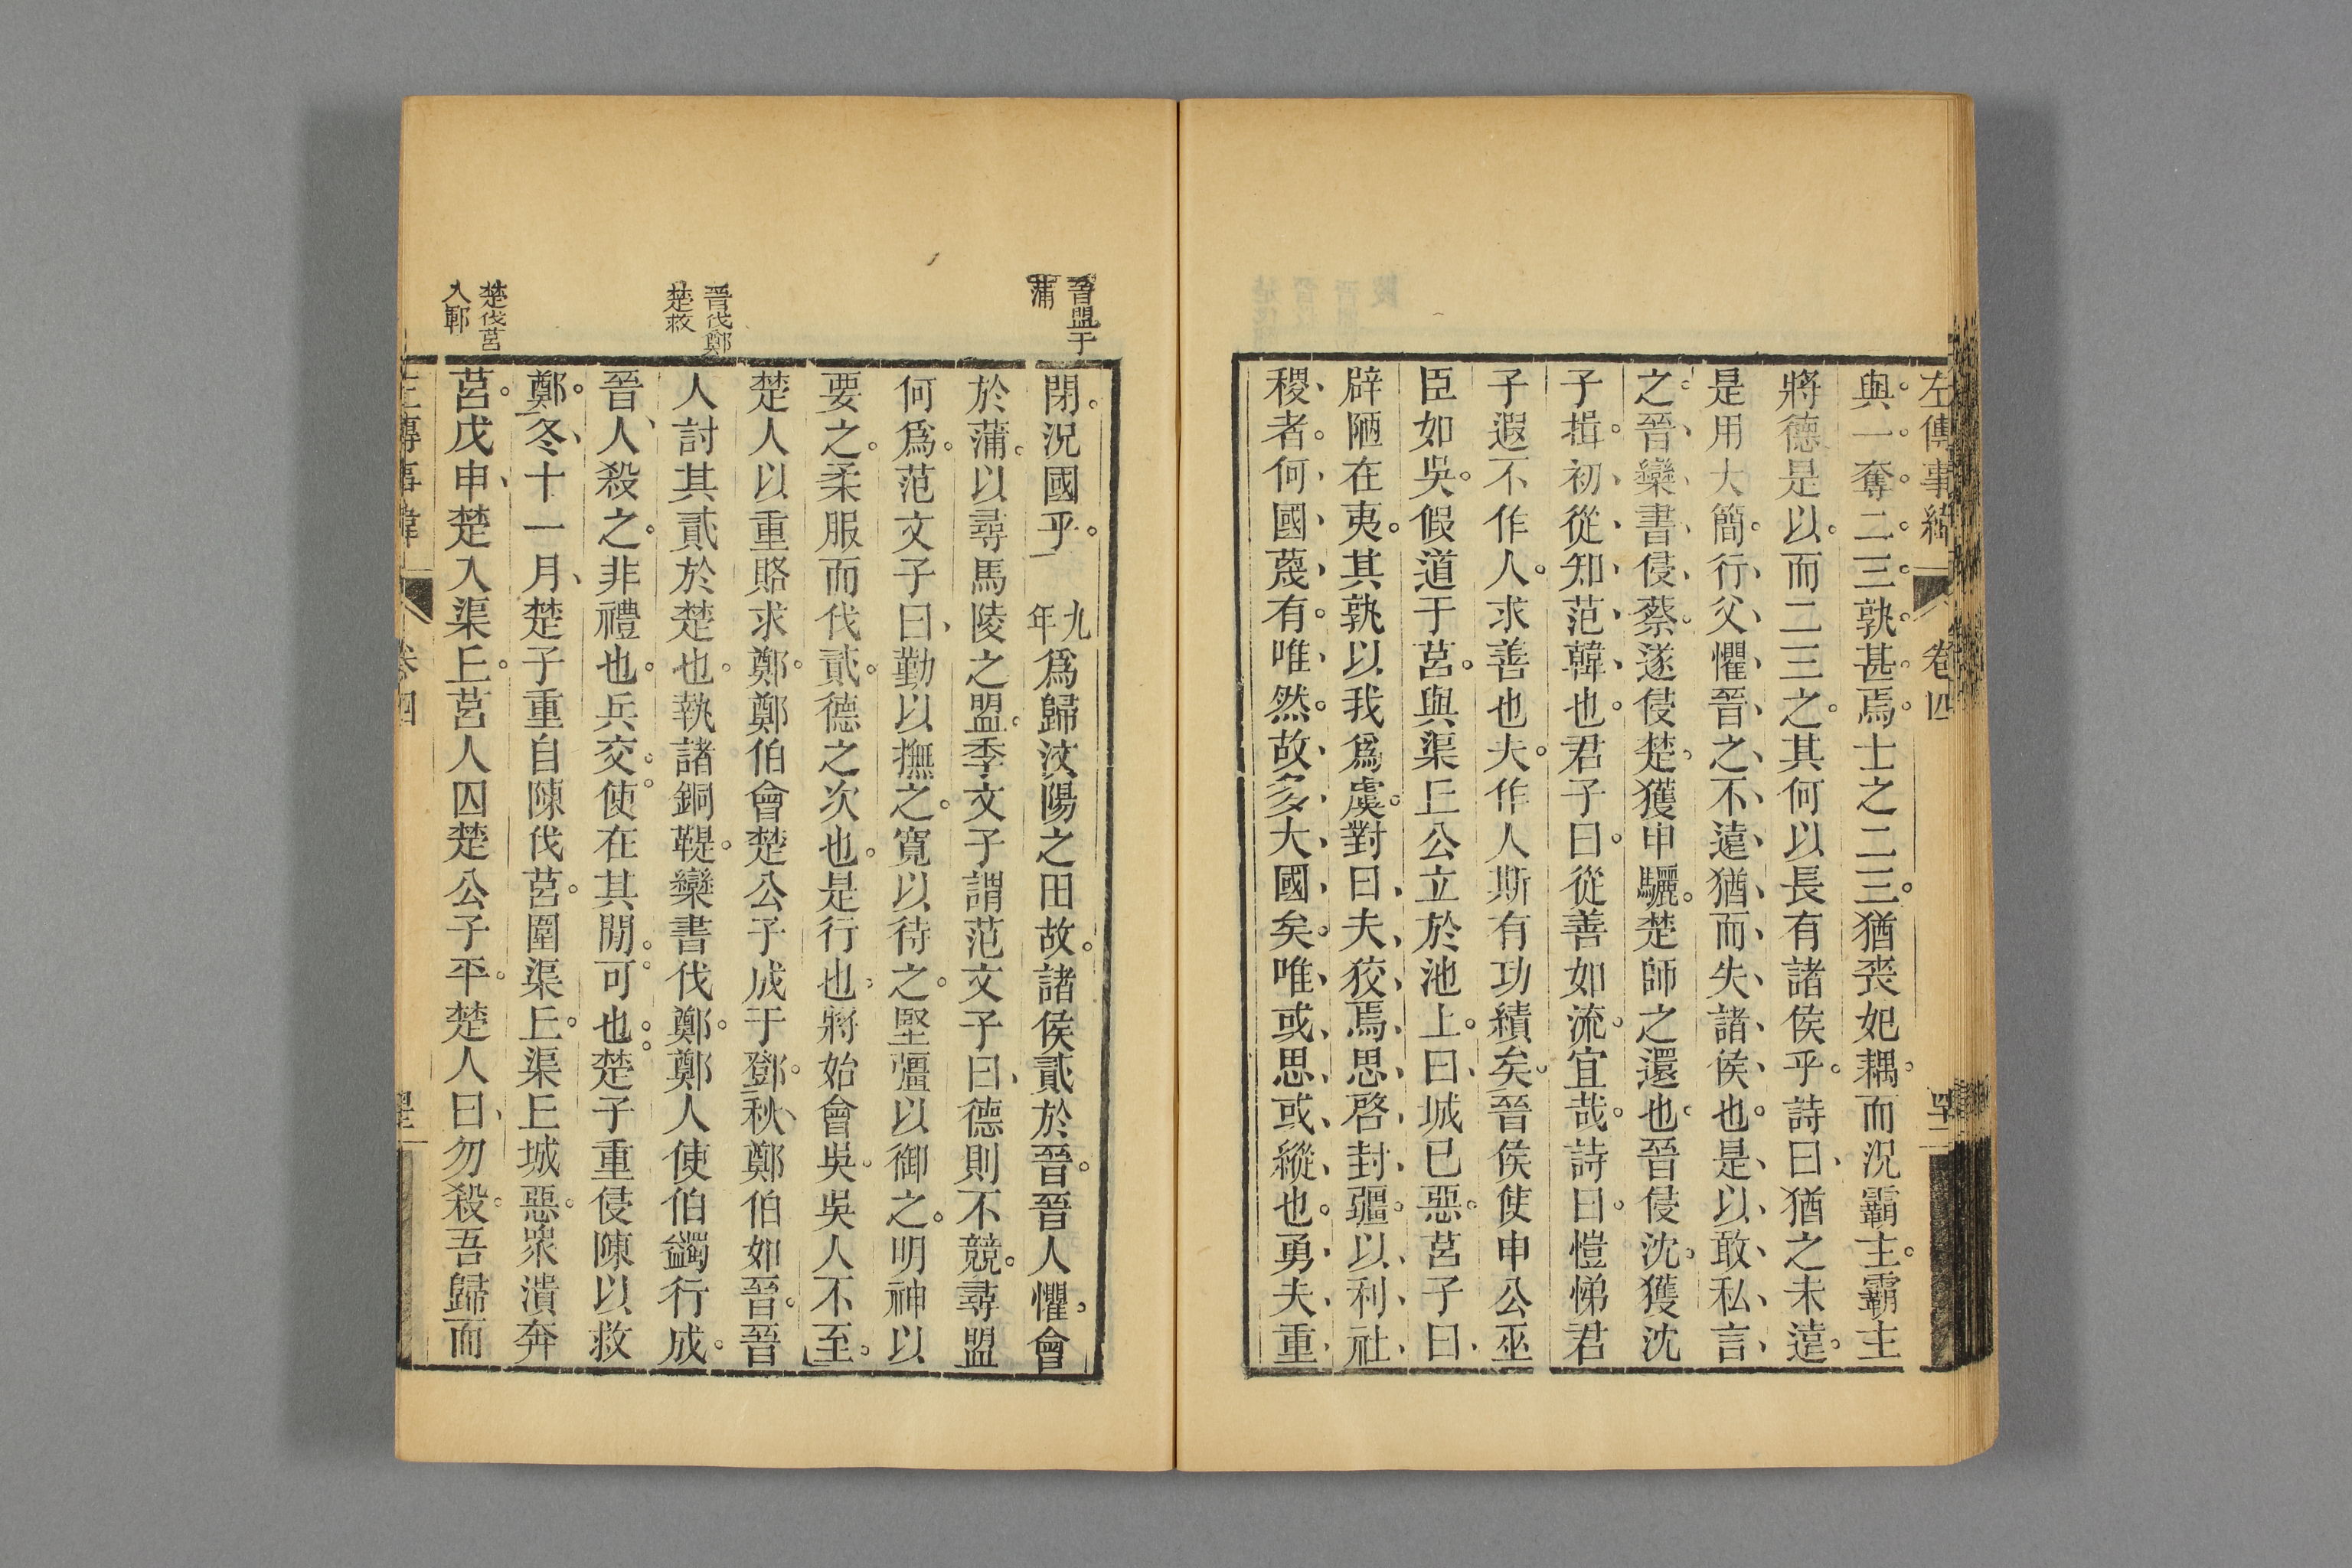 左傳事緯
卷四
與一奪二三孰甚焉士之二三猶喪妃耦而況霸主霸主
將德是以而二三之其何以長有諸侯乎詩曰猶之未遠
是用大簡行父懼晉之不遠猶而失諸侯也是以敢私言
之晉欒書侵蔡遂侵楚獲申驪楚師之還也晉侵沈獲沈
子揖初從知范韓也君子曰從善如流宜哉詩曰愷悌君
子遐不作人求善也夫作人斯有功績矣晉侯使申公巫
臣如吳假道于莒與渠丘公立於池上曰城已惡莒子曰
辟陋在夷其孰以我爲虞對曰夫狡焉思啓封疆以利社
稷者何國蔑有唯然故多大國矣唯或思或縱也勇夫重
晉盟于
蒲
閉況國乎
九
年
爲歸汶陽之田故諸侯貳於晉晉人懼會
於蒲以尋馬陵之盟季文子謂范文子曰德則不競尋盟
何爲范文子曰勤以撫之寬以待之堅彊以御之明神以
要之柔服而伐貳德之次也是行也將始會吳吳人不至
晉伐鄭
楚救
楚人以重賂求鄭鄭伯會楚公子成于鄧秋鄭伯如晉晉
人討其貳於楚也執諸銅鞮欒書伐鄭鄭人使伯蠲行成
晉人殺之非禮也兵交使在其閒可也楚子重侵陳以救
鄭冬十一月楚子重自陳伐莒圍渠丘渠丘城惡眾潰奔
楚伐莒
入鄆
莒戊申楚入渠丘莒人囚楚公子平楚人曰勿殺吾歸而
左傳事緯
卷四